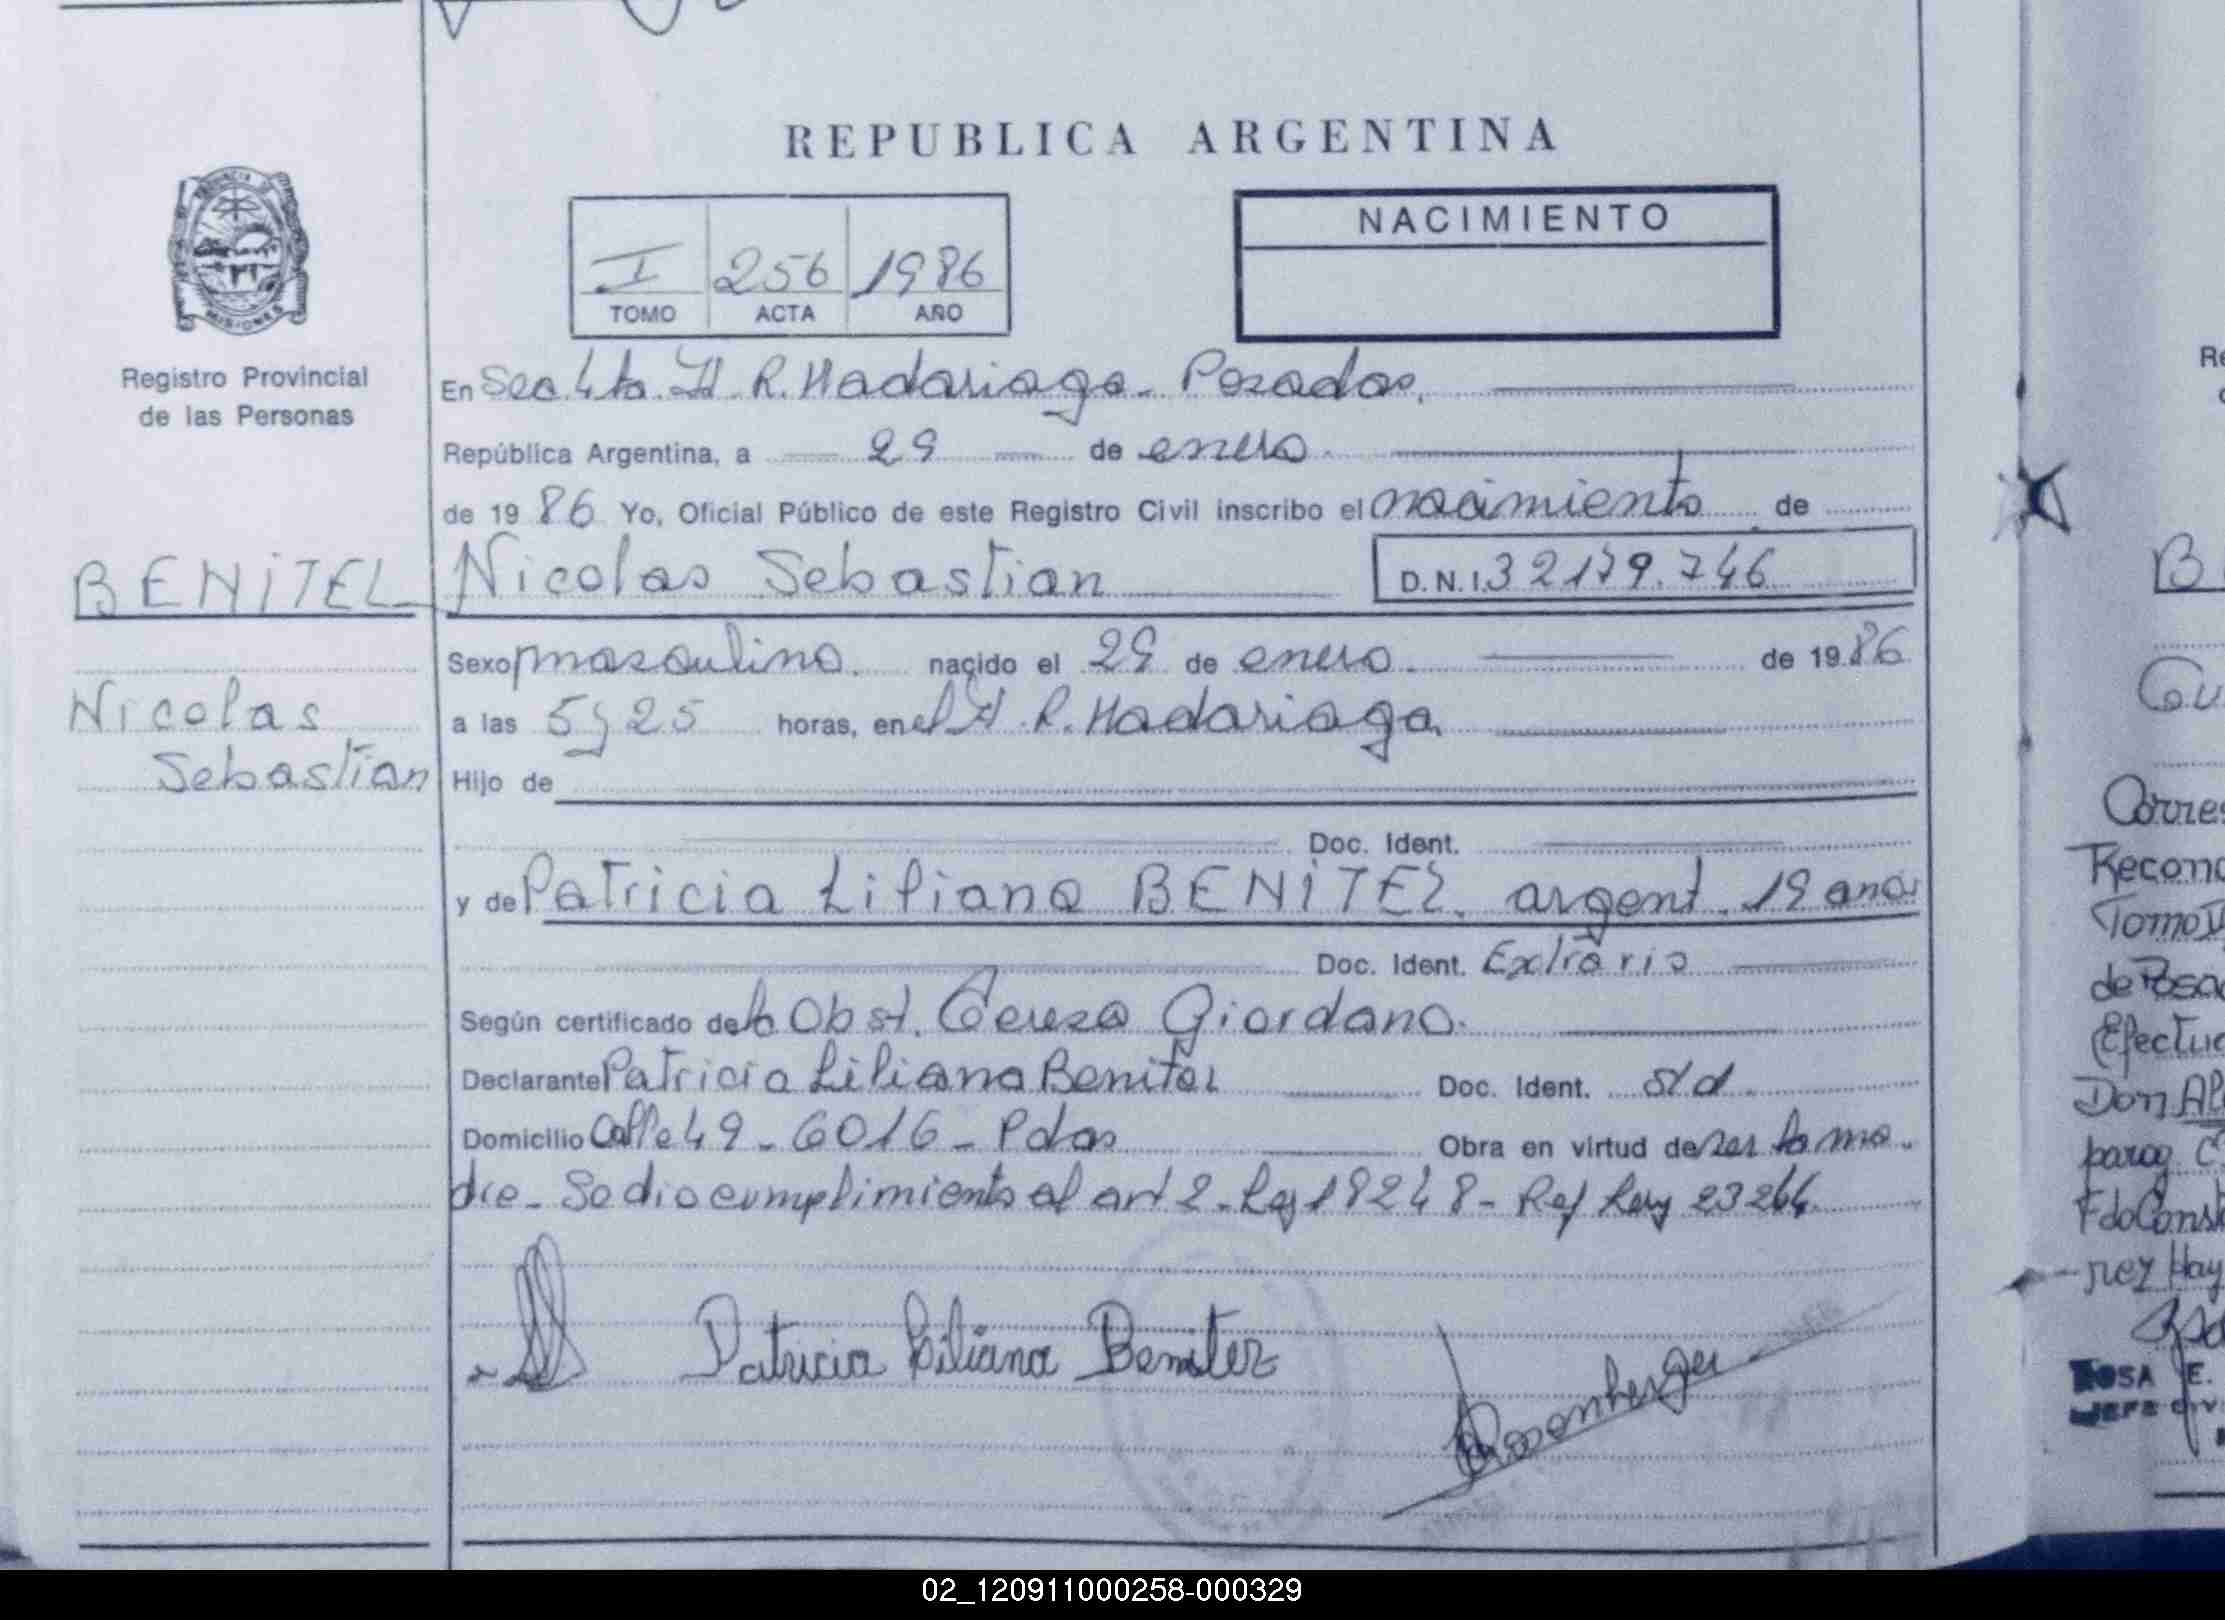 REPUBLICA ARGENTINA
PROVINCIA DE
MISIONES
Registro Provincial
de las Personas
I 256 1986
TOMO ACTA AÑO
NACIMIENTO
En Sec 4ta. H. R. Madariaga - Posadas,
República Argentina, a 29 de enero
de 1986 Yo, Oficial Público de este Registro Civil inscribo el nacimiento de
BENITEZ
Nicolas Sebastian D.N.I. 32179.746
Nicolas
Sebastian
Sexo masculino. nacido el 29 de enero. de 1986
a las 5 y 25 horas, en el H. R. Madariaga
Hijo de
Doc. Ident.
y de Patricia Liliana BENITEZ. argent. 19 anos
Doc. Ident. Extrario
Según certificado de la Obst. Teresa Giordano.
Declarante Patricia Liliana Benitez Doc. Ident. s/d
Domicilio Calle 49 - 6016 - Pdas Obra en virtud de ser la ma-
dre - Se dio cumplimiento al art 2 - Ley 18248 - Ref Ley 23264
Patricia Liliana Benitez
B
Gu
Corres
Recono
Tomo
de Posa
Efectua
Don Al
parag
Fdo Const
rez Hay
ROSA E.
JEFE CIV
02_120911000258-000329